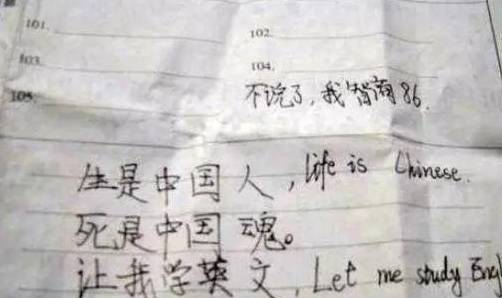 101.
102.
103.
104.
105.
不说了，我智商86.
生是中国人，life is Chinese.
死是中国魂。
让我学英文，Let me study Engl